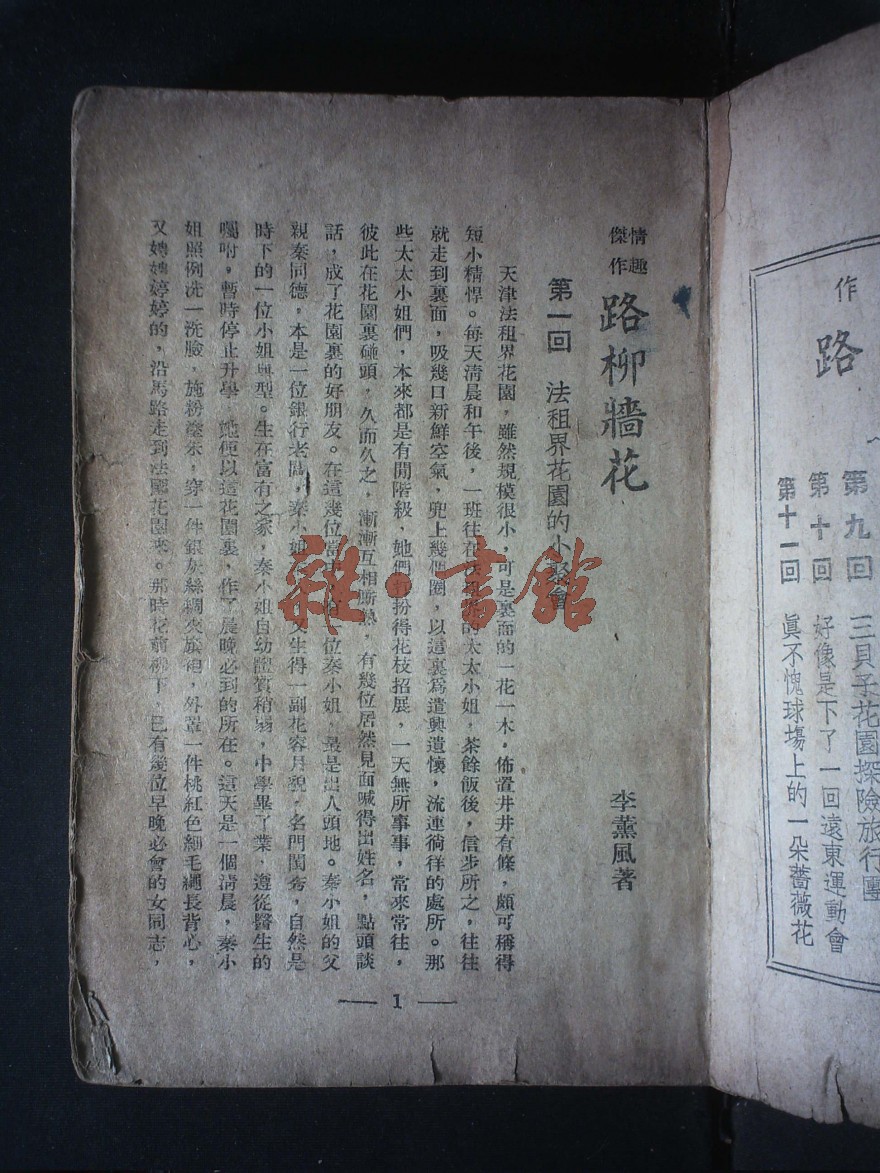 作
路
第九回 三貝子花園探險旅行團
第十回 好像是下了一回遠東運動會
第十一回 眞不愧球塲上的一朶薔薇花
情趣
傑作
路柳牆花
李薰風著
第一回 法租界花園的小聚會
天津法租界花園，雖然規模很小，可是裏面的一花一木，佈置井井有條，頗可稱得
短小精悍。每天淸晨和午後，一班住在法租界的太太小姐，茶餘飯後，信步所之，往往
就走到裏面，吸幾口新鮮空氣，兜上幾個圈，以這裏爲遣興遣懷，流連徜徉的處所。那
些太太小姐們，本來都是有閒階級，她們打扮得花枝招展，一天無所事事，常來常往，
彼此在花園裏碰頭，久而久之，漸漸互相廝熟，有幾位居然見面喊得出姓名，點頭談
話，成了花園裏的好朋友。在這幾位當中，位秦小姐，最是出人頭地。秦小姐的父
親秦同德，本是一位銀行老闆，秦小姐又生得一副花容月貌，名門閨秀，自然是
時下的一位小姐典型。生在富有之家，秦小姐自幼體質稍弱，中學畢了業，遵從醫生的
囑咐，暫時停止升學，她便以這花園裏，作了晨晚必到的所在。這天是一個淸晨，秦小
姐照例洗一洗臉，施粉塗朱，穿一件銀灰絲綢夾旗袍，外罩一件桃紅色細毛繩長背心，
又娉娉婷婷的，沿馬路走到法國花園來。那時花前柳下，已有幾位早晚必會的女同志，
— 1 —
雜·書館